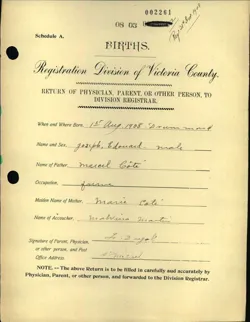 002261
08 63
Schedule A.
BIRTHS.
Registration Division of Victoria County.
RETURN OF PHYSICIAN, PARENT, OR OTHER PERSON, TO
DIVISION REGISTRAR.
When and Where Born, 1st Aug 1908 Drummond
Name and Sex, Joseph Edouard male
Name of Father, Marcel Coté
Occupation, farmer
Maiden Name of Mother, Marie Coté
Name of Accoucher, Malvina Martin
Signature of Parent, Physician,
or other person, and Post
Office Address,
NOTE.—The above Return is to be filled in carefully and accurately by
Physician, Parent, or other person, and forwarded to the Division Registrar.